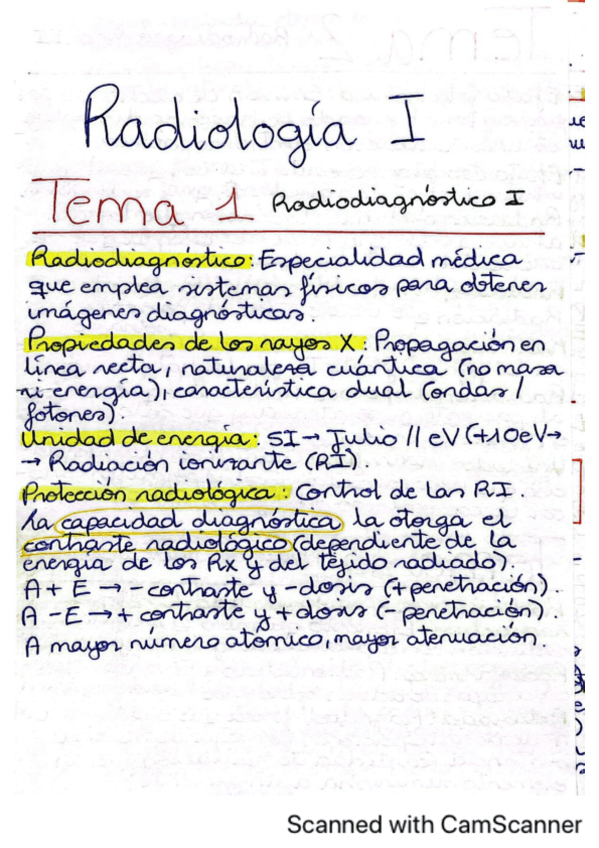 Radiología I
Tema 1 Radiodiagnóstico I
Radiodiagnostico: Especialidad médica
que emplea sistemas físicos para obtener
imágenes diagnósticas.
Propiedades de los rayos X: Propagación en
línea recta, naturaleza cuántica (no masa
ni energía), característica dual (ondas /
fotones).
Unidad de energía: SI → Julio // eV (+10eV→
→ Radiación ionizante (RI)
Protección radiológica: Control de las RI.
La capacidad diagnóstica la otorga el
contraste radiológico (dependiente de la
energía de los Rx y del tejido radiado).
A + E → - contraste y - dosis (+ penetración).
A - E → + contraste y + dosis (- penetración).
A mayor número atómico, mayor atenuación.
Scanned with CamScanner